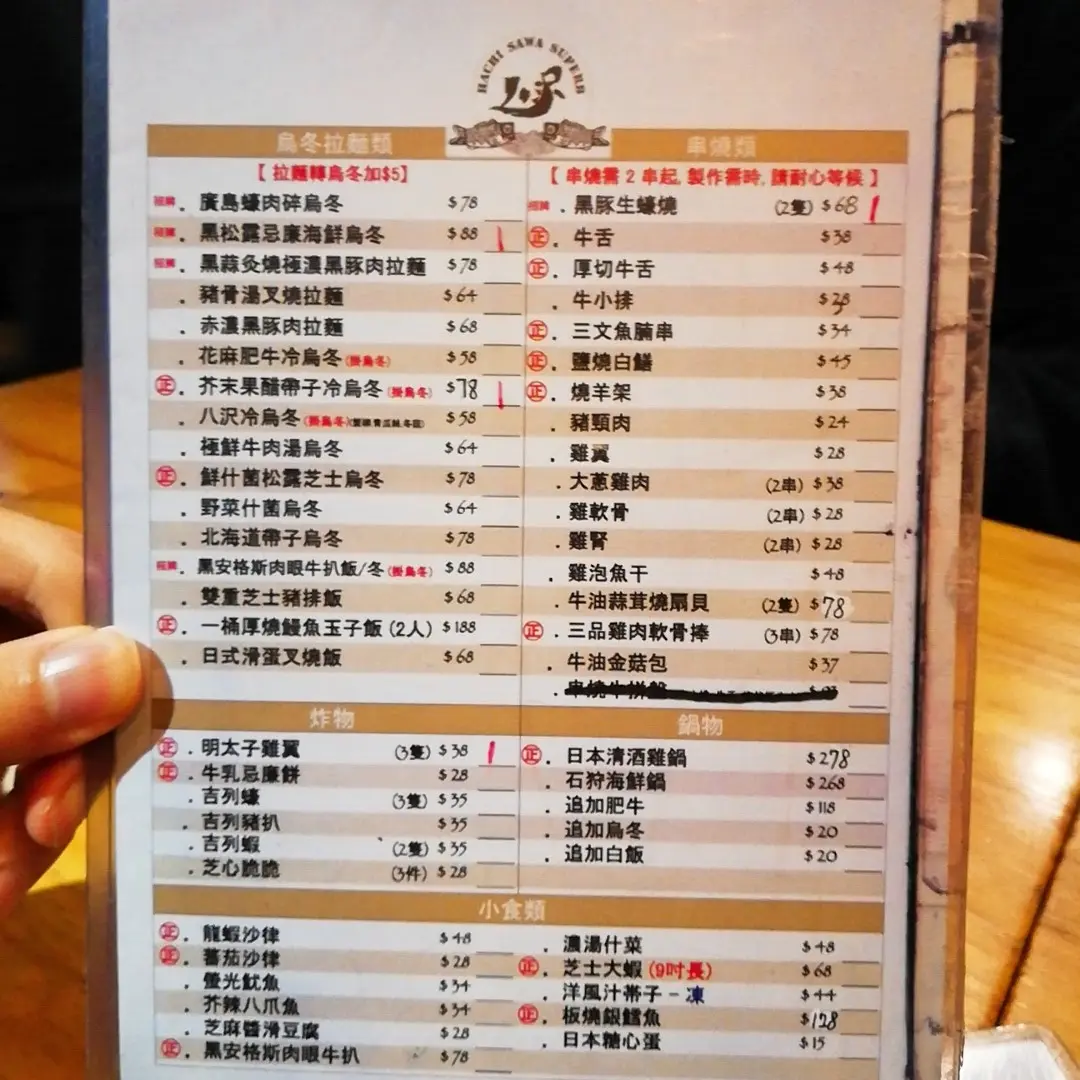 HACHI SAWA SUPERB
烏冬拉麵類
【 拉麵轉烏冬加$5】
招牌 . 廣島蠔肉碎烏冬 $78
招牌 . 黑松露忌廉海鮮烏冬 $88
招牌 . 黑蒜灸燒極濃黑豚肉拉麵 $78
. 豬骨湯叉燒拉麵 $64
. 赤濃黑豚肉拉麵 $68
. 花麻肥牛冷烏冬 (掛烏冬) $58
正 . 芥末果醋帶子冷烏冬 (掛烏冬) $78
. 八沢冷烏冬 (掛烏冬) $58
. 極鮮牛肉湯烏冬 $64
正 . 鮮什菌松露芝士烏冬 $78
. 野菜什菌烏冬 $64
. 北海道帶子烏冬 $78
招牌 . 黑安格斯肉眼牛扒飯/冬 (掛烏冬) $88
. 雙重芝士豬排飯 $68
正 . 一桶厚燒鰻魚玉子飯 (2人) $188
. 日式滑蛋叉燒飯 $68
串燒類
【 串燒需 2 串起, 製作需時, 請耐心等候 】
招牌 . 黑豚生蠔燒 (2隻) $68
正 . 牛舌 $38
正 . 厚切牛舌 $48
. 牛小排
正 . 三文魚腩串 $34
正 . 鹽燒白鱔 $45
正 . 燒羊架 $38
. 豬頸肉 $24
. 雞翼 $28
. 大蔥雞肉 (2串) $38
. 雞軟骨 (2串) $28
. 雞腎 (2串) $28
. 雞泡魚干 $48
. 牛油蒜茸燒扇貝 (2隻) $78
正 . 三品雞肉軟骨捧 (3串) $78
. 牛油金菇包 $37
炸物
正 . 明太子雞翼 (3隻) $38
正 . 牛乳忌廉餅 $28
. 吉列蠔 (3隻) $35
. 吉列豬扒 $35
. 吉列蝦 (2隻) $35
. 芝心脆脆 (3件) $28
鍋物
正 . 日本清酒雞鍋 $278
. 石狩海鮮鍋 $268
. 追加肥牛 $118
. 追加烏冬 $20
. 追加白飯 $20
小食類
正 . 龍蝦沙律 $48
正 . 蕃茄沙律 $28
. 螢光魷魚 $34
. 芥辣八爪魚 $34
. 芝麻醬滑豆腐 $28
正 . 黑安格斯肉眼牛扒 $78
. 濃湯什菜 $48
正 . 芝士大蝦 (9吋長) $68
. 洋風汁帶子 - 凍 $44
正 . 板燒銀鱈魚 $128
. 日本糖心蛋 $15